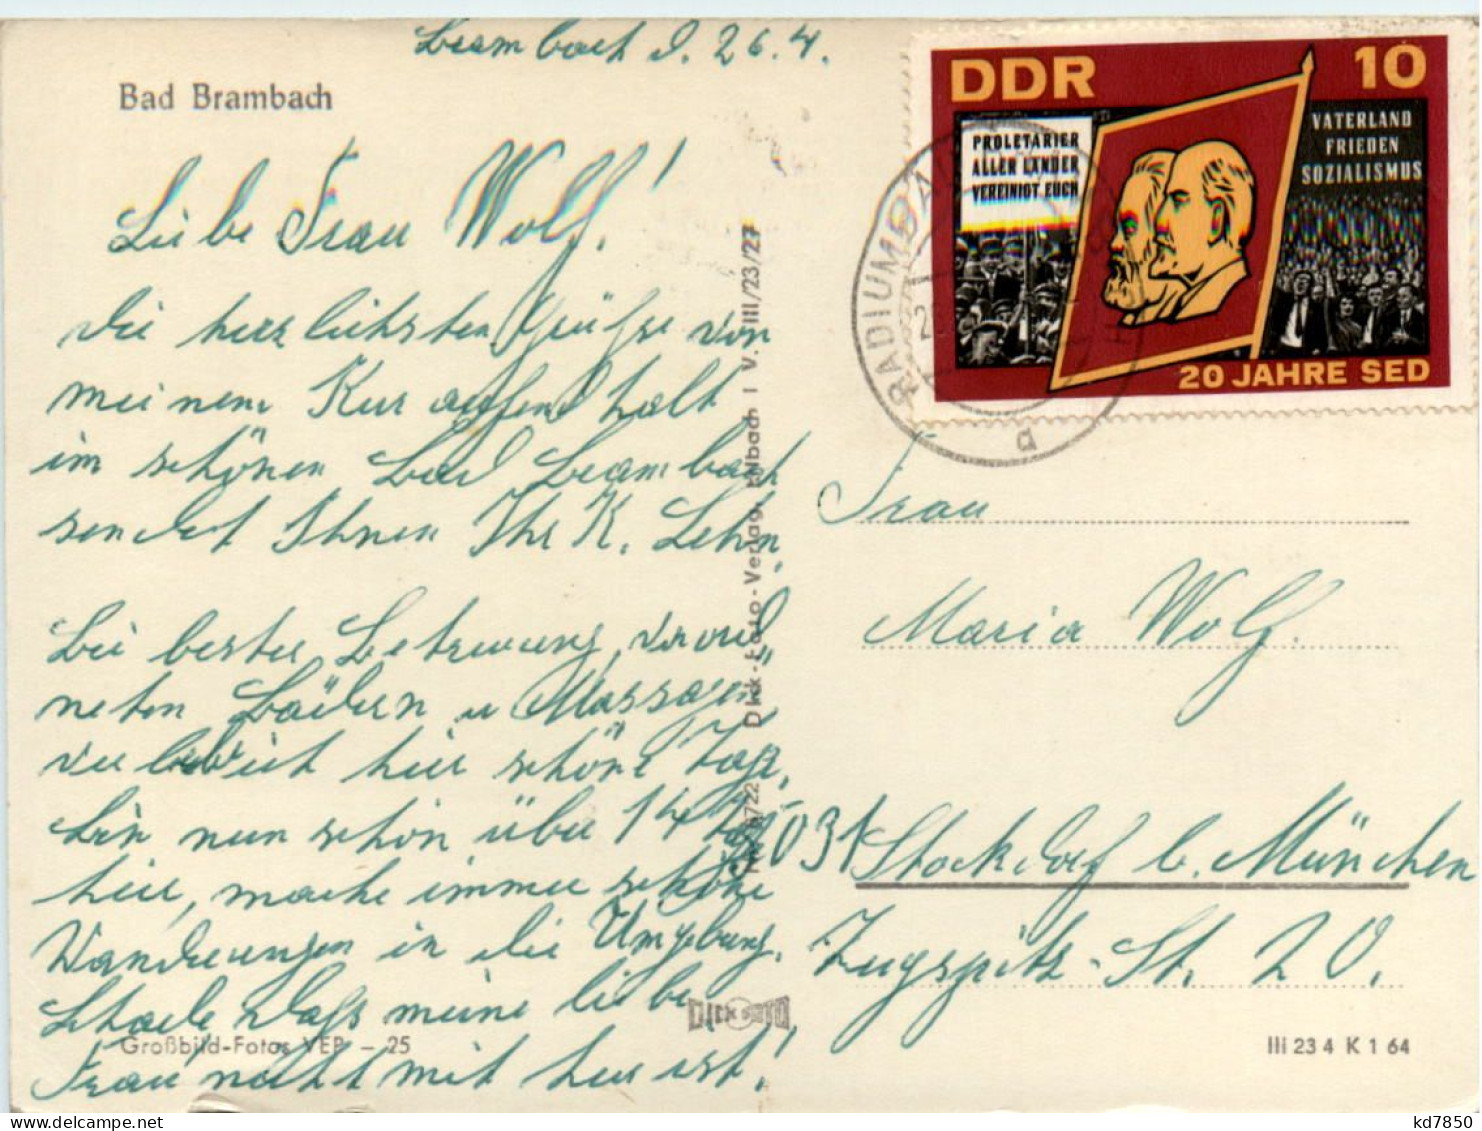 Brambach d. 26.4.
Bad Brambach
DDR 10
PROLETARIER
ALLER LÄNDER
VEREINIGT EUCH
VATERLAND
FRIEDEN
SOZIALISMUS
20 JAHRE SED
RADIUMBAD
a
Liebe Frau Wolf!
die herzlichsten Grüße von
meinem Kuraufenthalt
im schönen Bad Brambach
sendet Ihnen Ihr K. Lehn.
Bei bester Betreuung, verord
neten Bädern u Massagen
verlebe ich hier schöne Tage,
bin nun schon über 14 Tage
hier, mache immer schöne
Wanderungen in die Umgebung.
Schade daß meine liebe
Frau nicht mit hier ist!
Großbild-Fotos VEB – 25
Dick-Foto-Verlag, Erlbach i V. III/23/27
DICK FOTO
Frau
Maria Wolf.
8031 Stockdorf b. München
Zugspitz-St. 20.
III 23 4 K 1 64
kd7850